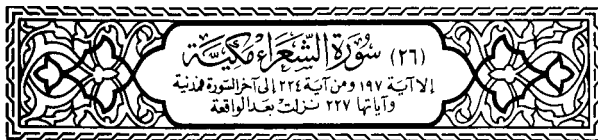 (٢٦) سُورَةُ الشُّعَرَاءِ مَكِيَّة
إلا آية ١٩٧ ومن آية ٢٢٤ إلى آخر السّورة فمدنية
وآياتها ٢٢٧ نزلت بعد الواقعة